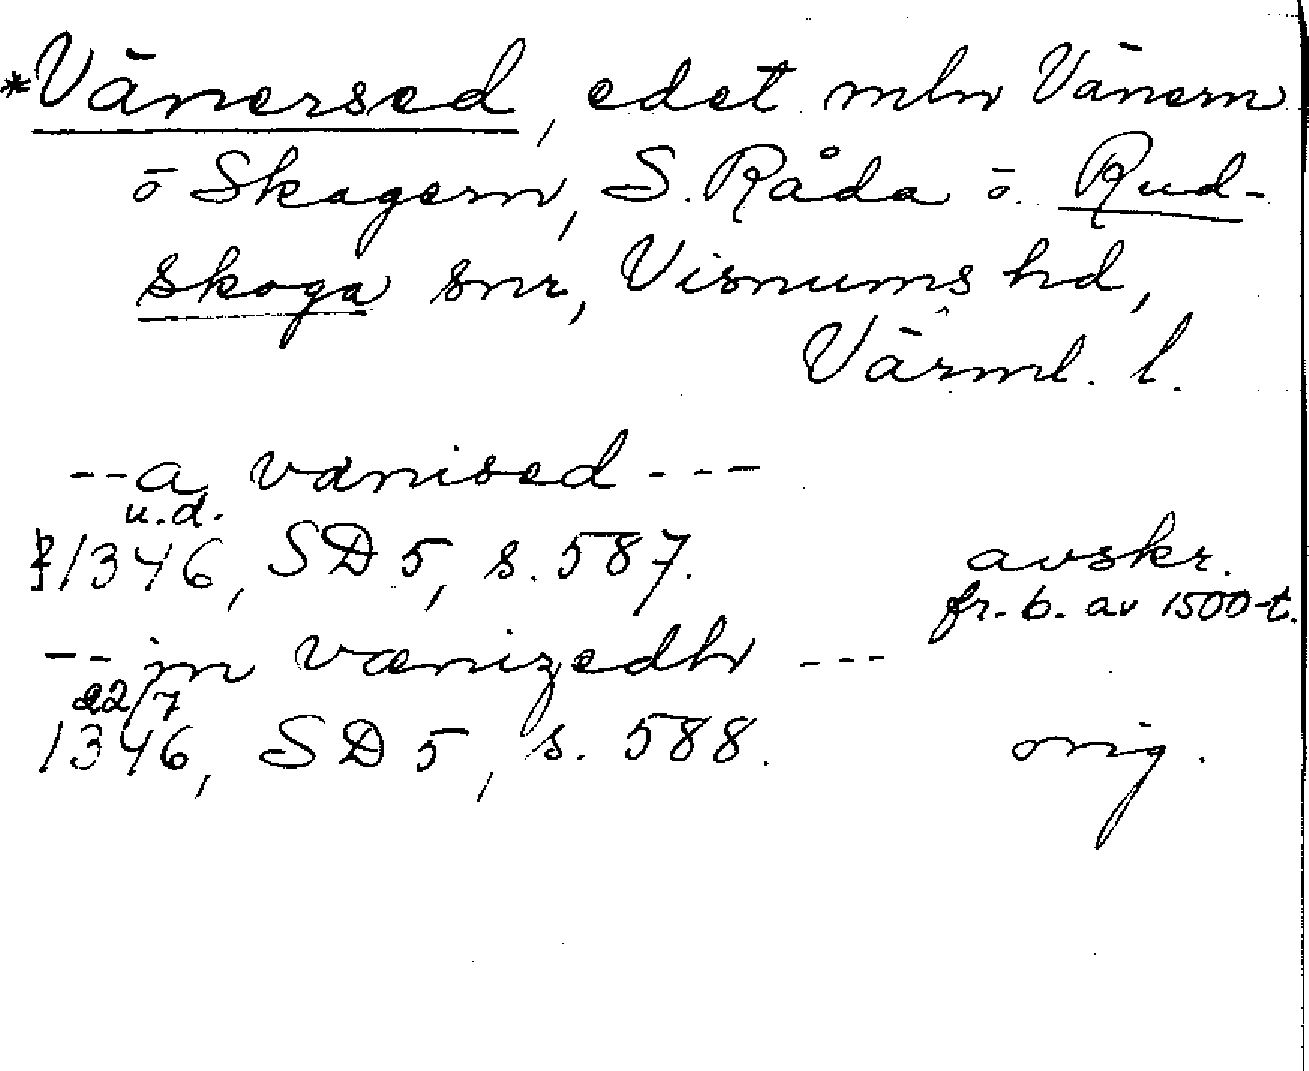 *Vänersed, edet mln Vänern
o Skagern, S. Råda o. Rud-
skoga snr, Visnums hd,
Värml. l.
--a vanised---
u.d.
1346, SD 5, s. 587. avskr.
fr. b. av 1500-t.
--in vænizedh ---
22/7
1346, SD 5, s. 588. orig.